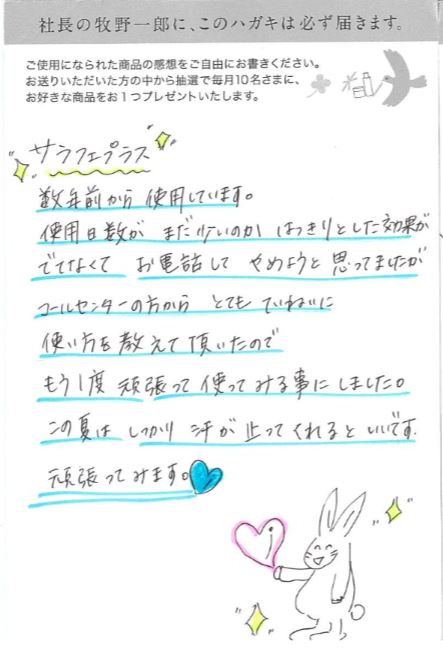 社長の牧野一郎に、このハガキは必ず届きます。
ご使用になられた商品の感想をご自由にお書きください。
お送りいただいた方の中から抽選で毎月10名さまに、
お好きな商品をお1つプレゼントいたします。
サラフェプラス
数年前から 使用しています。
使用日数が まだ少いのか はっきりとした効果が、
でてなくて お電話して やめようと思ってましたが
コールセンターの方から とても ていねいに
使い方を教えて頂いたので
もう1度 頑張って使ってみる事にしました。
この夏は しっかり 汗が止ってくれるといいです
頑張ってみます。